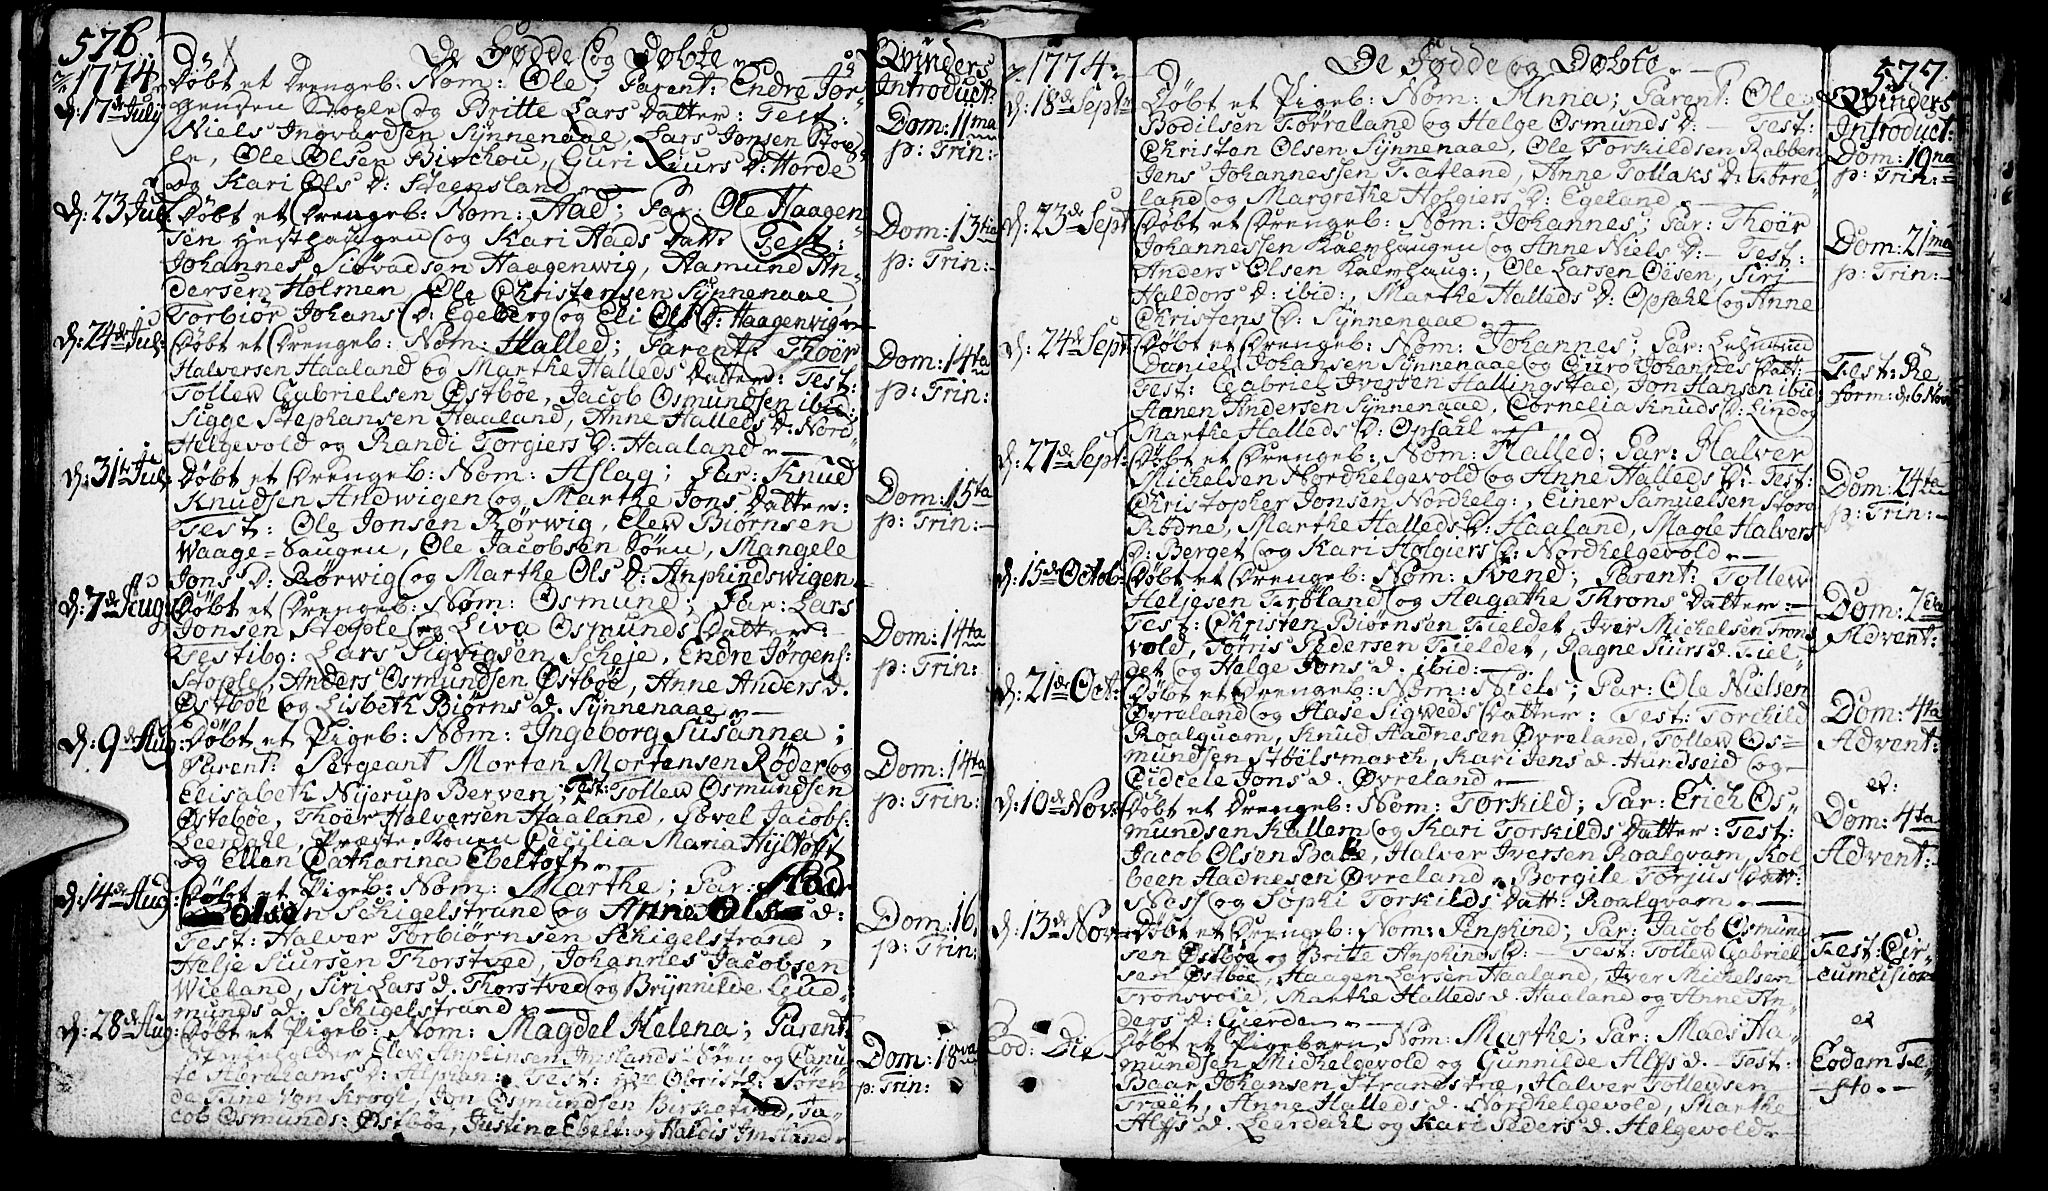 576.
De Fødde og Døbte
Qvinders
Introduct:
1774.
d: 17de July
Døbt et Drengeb: Nom: Ole; Parent: Endre Jør-
gensen Stople og Britte Lars Datter: Test:
Niels Ingvardsen Synnenaae, Lars Jonsen Stop-
le, Ole Olsen Birchou, Guri Siurs D: Horde
og Kari Ols D: Steensland
Dom: 11ma
p: Trin:
d: 23 Jul:
Døbt et Drengeb: Nom: Aad; Par: Ole Haagen
sen Hesthaugen og Kari Aads Datt: Test:
Johannes Siøvadsen Haagenwig, Aamund An-
dersen Holmen, Ole Christensen Synnenaae,
Torbiør Johans D: Egeberg og Eli Ols D: Haagenwig
Dom: 13tia
p: Trin:
d: 24de Jul:
Døbt et Drengeb: Nom: Halled; Parent: Thoër
Halversen Haaland og Marthe Halleds Datter: Test:
Tollew Gabrielsen Østbøe, Jacob Osmundsen ibid:
Sigge Stephansen Haaland, Anne Halleds D: Nord-
Helgevold og Randi Torgiers D: Haaland
Dom: 14ta
p: Trin:
d: 31te Jul:
Døbt et Drengeb: Nom: Aslag; Par: Knud
Knudsen Andwigen og Marthe Jons Datter:
Test: Ole Jonsen Rørwig, Elew Biørnsen
Waage-Saugen, Ole Jacobsen Søen, Mangele
Jons D: Rørwig og Marthe Ols D: Anphindswigen
Dom: 15ta
p: Trin:
d: 7de Aug:
Døbt et Drengeb: Nom: Osmund; Par: Lars
Jonsen Stople og Liva Osmunds Datter:
Testibg: Lars Sigvigsen Scheje, Endre Jørgens:
Stople, Anders Osmundsen Østbøe, Anne Anders d.
Østbøe og Lisbeth Biørns d. Synnenaae
Dom: 14ta
p: Trin:
d: 9de Aug:
Døbt et Pigeb: Nom: Ingeborg Susanna;
Parent: Sergeant Morten Mortensen Røder og
Elisabeth Nyerup Berven; Test: Tollew Osmundsen
Østebøe, Thoër Halversen Haaland, Povel Jacobs:
Leerdahl, Præste-Konen Cecilia Maria Hyltoft
og Ellen Catharina Ebeltoft
Dom: 14ta
p: Trin:
d: 14de Aug:
Døbt et Pigeb: Nom: Marthe; Par: Aad
Olsen Schigelstrand og Anne Ols d:
Test: Halver Torbiørnsen Schigelstrand,
Helje Siursen Thorstvee, Johannes Jacobsen
Wieland, Siri Lars d. Thorstved og Brynnilde Gud-
munds d. Schigelstrand
Dom: 16.
p: Trin:
d: 28de Aug:
Døbt et Pigeb: Nom: Magdel Helena; Parent:
Elew Anphinsen Imslands Søen og Canu-
te Abrahams D: Test: Obrist: Søren
de Fine von Krogh, Jon Osmundsen Birkeland, Ja-
cob Osmunds: Østbøe, Justine Ebelt: og Haldis Imsland
Dom: 18va
p: Trin:
1774.
De Fødde og Døbte
577.
Qvinders
Introduct:
d: 18de Septr
Døbt et Pigeb: Nom: Anna; Parent: Ole
Bodilsen Tørreland og Helge Osmunds D: Test:
Christan Olsen Synnenaae, Ole Torkildsen Rabben
Jens Johannessen Fatland, Anne Tollaks D: Tørre-
land og Margrethe Holgiers D: Egeland
Dom: 19na
p: Trin:
d: 23de Sept
Døbt et Drengeb: Nom: Johannes; Par: Thoër
Johannessen Kalvhaugen og Anne Niels D: Test:
Anders Olsen Kalvhaug:, Ole Larsen Oësen, Siri
Haldors D: ibid:, Marthe Halleds D: Opsahl og Anne
Christens D: Synnenaae
Dom: 21ma
p: Trin:
d: 24de Sept
Døbt et Drengeb: Nom: Johannes; Par:
Daniel Johansen Synnenaae og Guro Johannes Datt:
Test: Gabriel Iversen Hallingstad, Jon Hansen ibid
Hanen Andersen Synnenaae, Cornelia Knuds D: Lind og
Marthe Halleds D: Opsahl
Fest: Re
form: d: 6 Nov:
d: 27de Sept:
Døbt et Drengeb: Nom: Halled; Par: Halver
Michelsen Nordhelgevold og Anne Halleds D: Test:
Christopher Jonsen Nordhelg:, Einer Samuelsen Store
Rødne, Marthe Halleds D: Haaland, Magie Halvers
D: Berget og Kari Holgiers D: Nordhelgevold
Dom: 24ta
p: Trin:
d: 15de Octob:
Døbt et Drengeb: Nom: Svend; Parent: Tollew
Heljesen Frøland og Aagathe Throns Datter:
Test: Christen Biørnsen Fieldet, Iver Michelsen Trons
vold, Tørris Pedersen Fieldet, Ragne Siurs d. Fiel-
det og Helge Jons d. ibid:
Dom: 2da
Advent:
d: 21de Oct:
Døbt et Drengeb: Nom: Niels; Par: Ole Nielsen
Øvreland og Aase Sigweds Datter: Test: Torchild
Roalquam, Knud Aadnesen Øvreland, Tollew Os-
mundsen Støelsmarch, Kari Jens d. Hundseid og
Eidcele Jons d. Øvreland
Dom: 4ta
Advent:
d: 10de Nov:
Døbt et Drengeb: Nom: Torkild; Par: Erich Os-
mundsen Kallem og Kari Torkilds Datter: Test:
Jacob Olsen Bake, Halver Iversen Roalgvam, Kol-
been Aadnesen Øvreland, Borgile Torjus Datt:
Ness og Sophi Torkilds Datt: Roalgvam
ed:
Dom: 4ta
Advent:
d: 13de Nov:
Døbt et Drengeb: Nom: Anphind; Par: Jacob Osmund
sen Østbøe og Britte Anphinds D: Test: Tollew Gabriel
sen Østbøe, Haagen Larsen Haaland, Iver Michelsen
Tronsvold, Marthe Halleds d. Haaland og Anne An-
ders d: Gierde
Fest: Cir-
cumcision:
Eod: Die
Døbt et Pigebern, Nom: Marthe; Par: Mads Aa-
mundsen Michelgevold og Gunnilde Alfs d. Test:
Baar Johansen Strandstræ, Halver Tollevsen
Træet, Anne Halleds d. Nordhelgevold, Marthe
Alfs d. Leerdahl og Kari Peders d. Helgevold
ed
Eodem Fe-
sto.